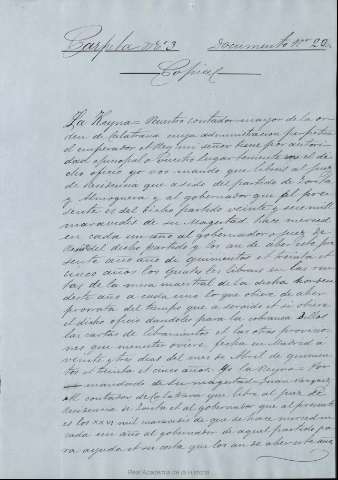 Carpeta nº 3 Documento Nº 29
Copia
La Reyna = Nuestro contador mayor de la or-
den de Calatrava cuya administracion perpetua
el emperador el Rey mi señor tiene por autori-
dad apostolica o vuestro lugar teniente en el di-
cho oficio yo vos mando que libreis al juez
de residencia que a sido del partido de Zorita
y Almoguera y al gobernador que al pre-
sente es del dicho partido veinte y seis mil
maravedis de que su Magestad hace merced
en cada un año al gobernador o juez de
Resid del dicho partido y los an de aber este pre-
sente año año de quinientos et treinta et
cinco años los quales les librais en las ren-
tas de la mesa maestral de la dicha orden
deste año a cada uno lo que obiere de aber
prorrata del tiempo que a servido et serviere
el dicho oficio dandoles para la cobranza dellos
las cartas de libramientos et las otras provisio-
nes que menester oviere fecha en Madrid a
veinte y tres dias del mes de Abril de quinien-
tos et treinta et cinco años. Yo la Reyna = Por
mandado de su magestad = Juan Vazquez
Al contador de Calatrava que libre al juez de
Residencia de Zorita et al gobernador que al presente
es los xxvi mil maravedis de que se hace merced en
cada un año al gobernador de aquel partido pa-
ra ayuda et su costa que los an de aber este año
Real Academia de la Historia